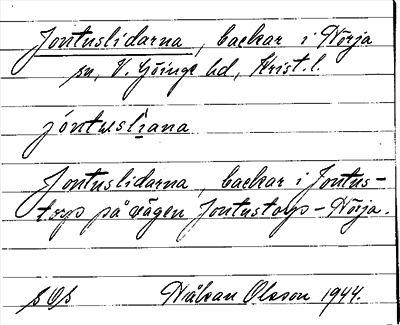 Jontuslidarna, backar i Nörja
sn, V. Göinge hd, Krist.l.
jóntuslịana
Jontuslidarna, backar i Jontus-
torp på vägen Jontustorp - Nörja.
Håkan Olsson 1944.